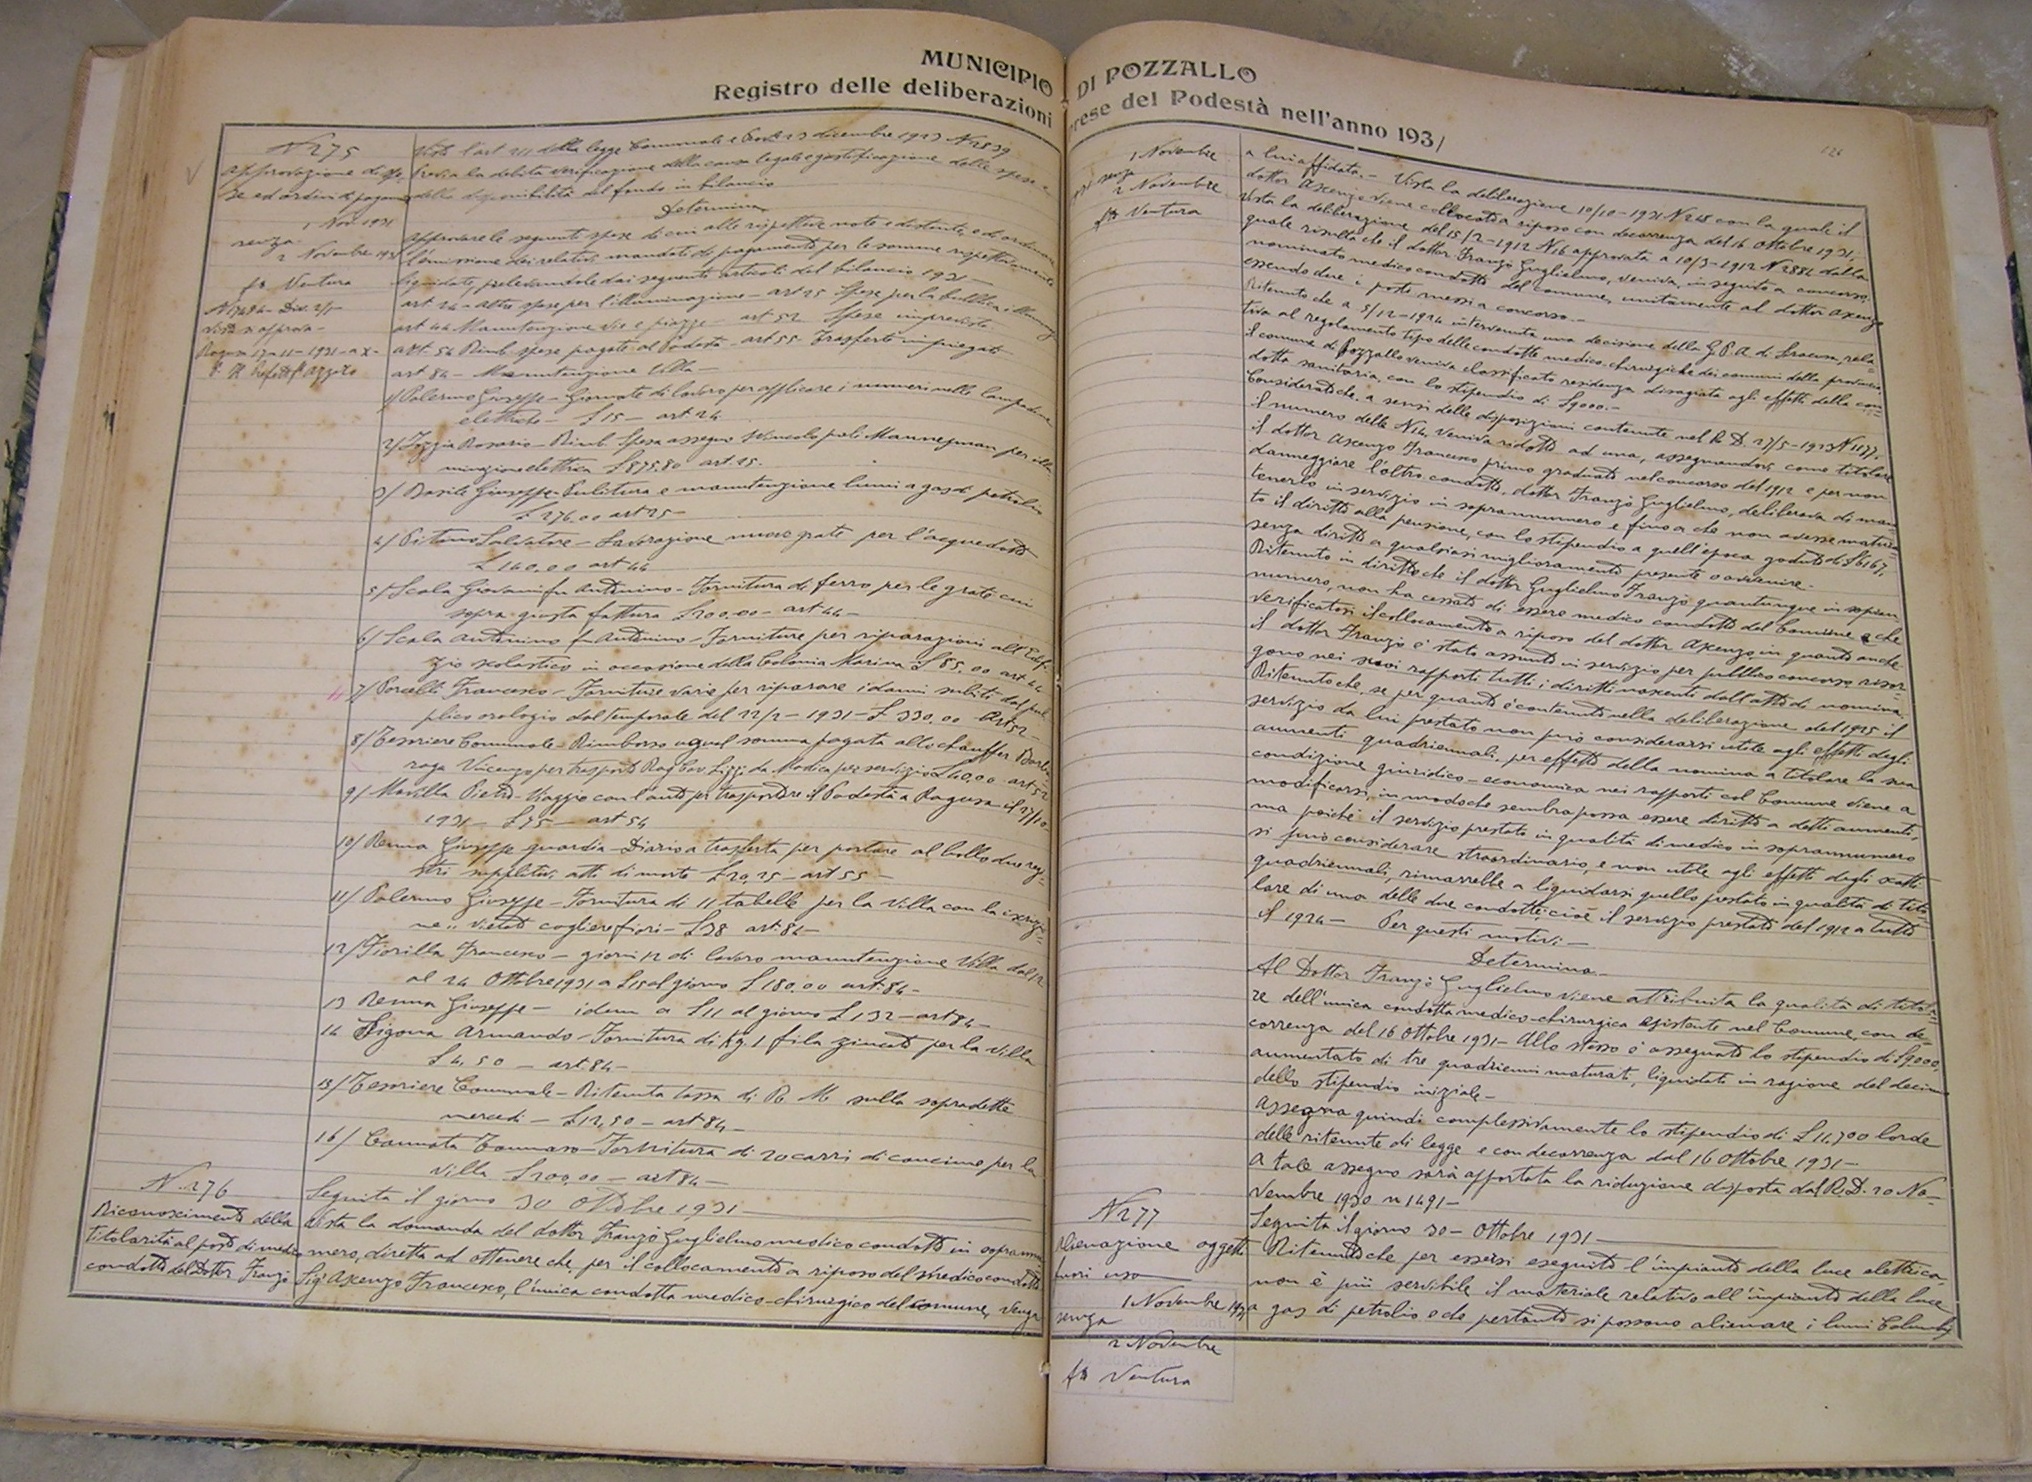 MUNICIPIO DI POZZALLO
Registro delle deliberazioni prese del Podestà nell'anno 1931
N 275
approvazione di spe-
se ed ordine di pagam
1 Nov 1931
senza
2 Novembre 1931
fto Ventura
Visto si approva -
Ragusa 17-11-1931-a X-
Vista l'art 211 della legge Comunale e 23 dicembre 1923 N 2839
previa la debita verificazione della causa legale e giustificazione delle spese e
della disponibilità del fondo in bilancio
Determina
approvare le seguenti spese di cui alle rispettive note e distinte, e di ordinare
l'emissione dei relativi mandati di pagamento per le somme rispettivamente
liquidate, prelevandole dai seguenti articoli del bilancio 1931 -
art 24 - altre spese per l'illuminazione - art 25 Spese per la pubblica illuminaz
art 44 Manutenzione vie e piazze - art 52 Spese impreviste
art. 54 Rimb. spese pagate al Podestà - art 55 - Trasferte impiegati
art 84 - Manutenzione Villa -
1/ Palermo Giuseppe - Giornate di lavoro per applicare i numeri nelle lampadine
elettriche - £ 15 - art 24
2/ Rosario - Rimb. Spesa assegno svincolo pali Mannesman per illu
minazione elettrica £ 875.80 art 25.
3/ Basile Giuseppe - Pulitura e manutenzione lumi a gas di petrolio
£ 276,00 art 25 -
4/ Salvatore - Lavorazione nuove grate per l'acquedotto
£ 140.00 art 44
5/ Scala Giovanni fu Antonino - Fornitura di ferro per le grate cui
sopra giusta fattura £ 200.00 - art 44 -
6/ Scala Antonino fu Antonino - Forniture per riparazioni all'Edifi
zio scolastico in occasione della Colonia Marina £ 85.00 art 44
7/ Porcelli Francesco - Forniture varie per riparare i danni subiti dal pub
blico orologio dal temporale del 22/2 - 1931 - £ 330.00 art 52 -
8/ Tesoriere Comunale - Rimborso ugual somma pagata allo chauffer Barba
raga Vincenzo per trasporto Rag Cav Lizzi da Modica per servizio £ 40.00 art 52
9/ Mavilla Pietro - Viaggio con l'auto per trasportare il Podestà a Ragusa il 27/10 -
1931 - £ 75 - art 54
10/ Renna Giuseppe guardia - Diaria e trasferta per portare al bollo due regi-
stri suppletivi atti di morte £ 20,25 - art 55 -
11/ Palermo Giuseppe - Fornitura di 11 tabelle per la Villa con la iscrizio-
ne " Vietato cogliere fiori - £ 38 art. 84 -
12/ Fiorilla Francesco - giorni 12 di lavoro manutenzione Villa dal 12
al 24 Ottobre 1931 a £ 15 al giorno £ 180.00 art. 84 -
13 Renna Giuseppe - idem a £ 11 al giorno £ 132 - art 84 -
14 Sigona Armando - Fornitura di Kg. 1 filo zincato per la Villa
£ 4.50 - art. 84 -
15/ Tesoriere Comunale - Ritenuta tassa di R. M. sulla sopradette
mercedi - £ 12,50 - art 84 -
16/ Cannata Tommaso - Fornitura di 20 carri di concime per la
Villa £ 200,00 - art 84 -
N. 276
Riconoscimento della
titolarità al posto di medico
condotto del Dottor Franzò
Seguita il giorno 30 Ottobre 1931
Vista la domanda del dottor Franzò Guglielmo medico condotto in soprannu
mero, diretta ad ottenere che, per il collocamento a riposo del medico condotto
Sig. Axenzo Francesco, l'unica condotta medico-chirurgico del Comune, venga
1 Novembre
senza
2 Novembre
fto Ventura
a lui affidata. - Vista la deliberazione 10/10 - 1931 N 248 con la quale il
dottor Axenzo viene collocato a riposo con decorrenza del 16 Ottobre 1931;
Vista la deliberazione del 15/2 - 1912 N 16 approvata a 10/3 - 1912 N 2884 dalla
quale risulta che il dottor Franzò Guglielmo, veniva, in seguito a concorso,
nominato medico condotto del comune, unitamente al dottor Axenzo
essendo due i posti messi a concorso. -
Ritenuto che a 5/12 - 1924 interveniva una decisione della G.P.A. di Siracusa, rela-
tiva al regolamento tipo delle condotte medico-chirurgiche dei comuni della provincia,
il comune di Pozzallo veniva classificato residenza disagiata agli effetti della con-
dotta sanitaria, con lo stipendio di £ 9000. -
Considerato che, a sensi delle disposizioni contenute nel R. D. 27/5 - 1923 N 1177,
il numero delle veniva ridotto ad una, assegnandovi come titolare
il dottor Axenzo Francesco primo graduato nel concorso del 1912 e per non
danneggiare l'altro condotto, dottor Franzò Guglielmo, deliberava di man
tenerlo in servizio in soprannumero e fino a che non avesse matura-
to il diritto alla pensione, con lo stipendio a quell'epoca goduto di £ 6167,
senza diritto a qualsiasi miglioramento presente o avvenire. -
Ritenuto in diritto che il dottor Guglielmo Franzò quantunque in sopran
numero, non ha cessato di essere medico condotto del Comune e che
verificatosi il collocamento a riposo del dottor Axenzo in quanto anche
il dottor Franzò è stato assunto in servizio per pubblico concorso risor-
gono nei suoi rapporti tutti i diritti nascenti dall'atto di nomina.
Ritenuto che, se per quanto è contenuto nella deliberazione del 1925 il
servizio da lui prestato non può considerarsi utile agli effetti degli
aumenti quadriennali, per effetto della nomina a titolare la sua
condizione giuridico-economica nei rapporti col Comune viene a
modificarsi, in modo che sembra possa essere diritto a detti aumenti,
ma poichè il servizio prestato in qualità di medico in soprannumero
si può considerare straordinario, e non utile agli effetti degli scatti
quadriennali, rimarrebbe a liquidarsi quello prestato in qualità di tito
lare di una delle due condotte, cioè il servizio prestato dal 1912 a tutto
il 1924 - Per questi motivi -
Determina -
Al Dottor Franzò Guglielmo viene attribuita la qualità di titola-
re dell'unica condotta medico-chirurgica esistente nel Comune, con de-
correnza del 16 Ottobre 1931 - Allo stesso è assegnato lo stipendio di £ 9000,
aumentato di tre quadrienni maturati, liquidati in ragione del decimo
dello stipendio iniziale -
Assegna quindi complessivamente lo stipendio di £ 11,700 lorde
delle ritenute di legge e con decorrenza dal 16 Ottobre 1931 -
A tale assegno sarà apportata la riduzione disposta dal R.D. 20 No-
vembre 1930 n 1491 -
N 277
Alienazione oggetti
fuori uso
1 Novembre 1931
senza
2 Novembre
fto Ventura
Seguita il giorno 30 - Ottobre 1931
Ritenuto che per essersi eseguito l'impianto della luce elettrica
non è più servibile il materiale relativo all'impianto della luce
a gas di petrolio e che pertanto si possono alienare i lumi